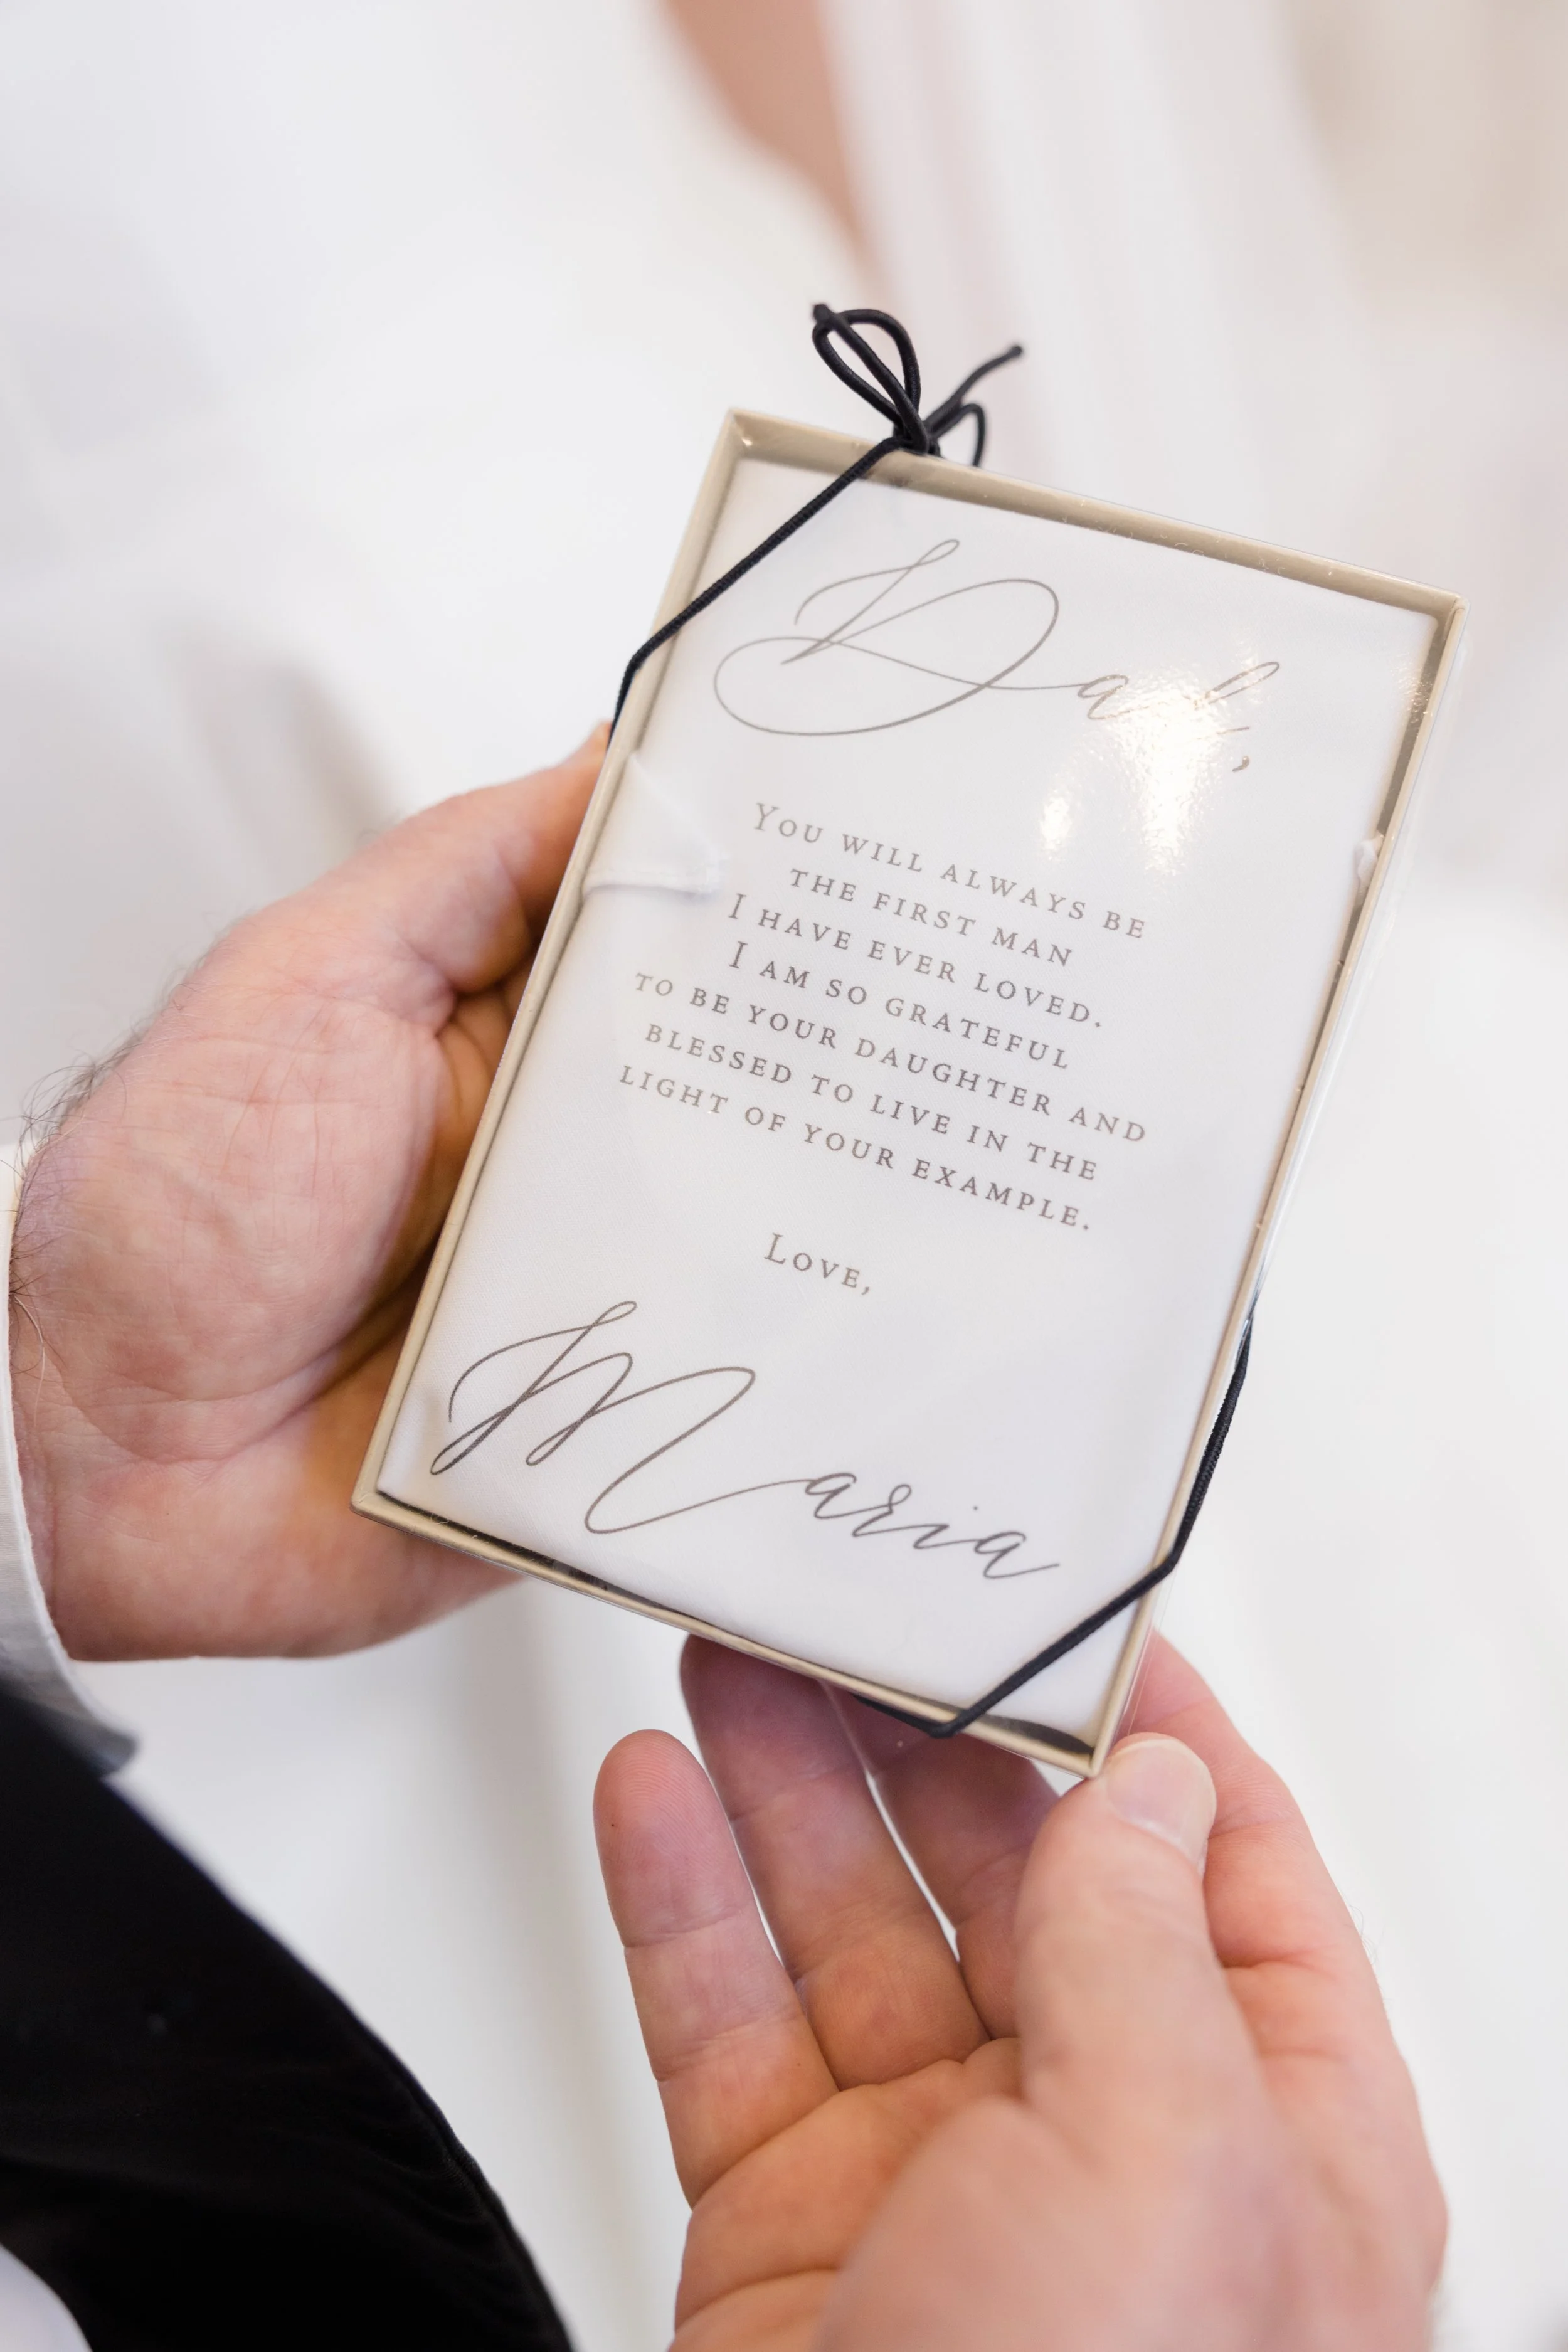 Dad,
YOU WILL ALWAYS BE
THE FIRST MAN
I HAVE EVER LOVED.
I AM SO GRATEFUL
TO BE YOUR DAUGHTER AND
BLESSED TO LIVE IN THE
LIGHT OF YOUR EXAMPLE.
LOVE,
Maria